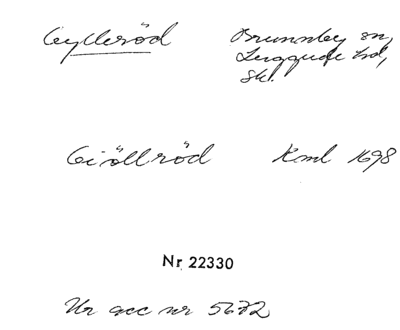 Gylleröd Brunnby sn,
Luggude hd,
Sk.
Giöllröd Kml 1698
Nr 22330
Ur acc nr 5672